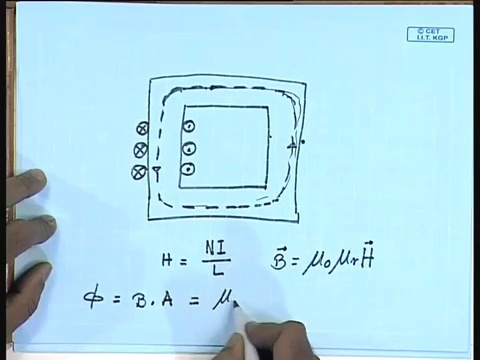 © CET
I.I.T. KGP
H = NI/L    B⃗ = μ₀ μᵣ H⃗
ϕ = B . A = μ